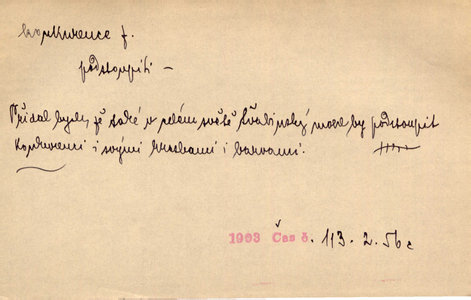 konkurence f.
podstoupiti –
Přidal bych, že také v celém světě Švabinský mohl by podstoupit
konkurenci i svými kresbami i barvami.
1903 Čas č. 113. 2. 5b c